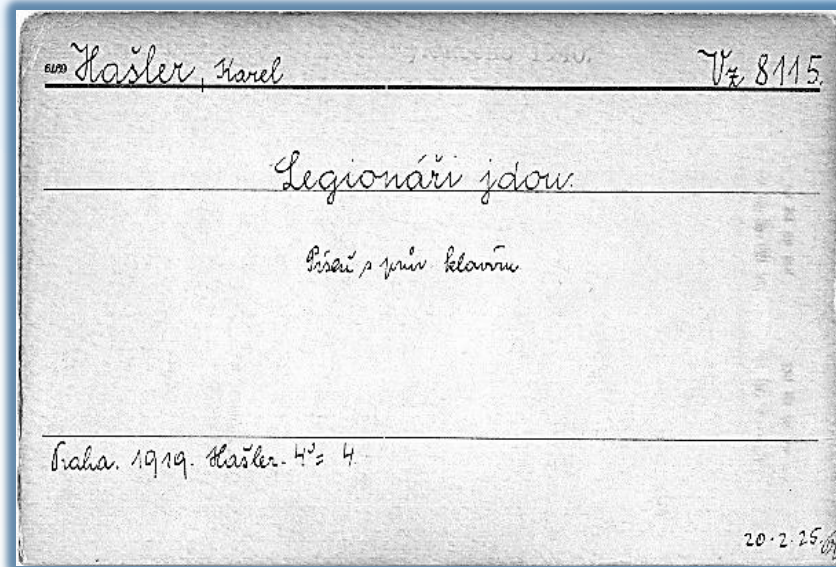 Hašler, Karel Vz 8115.
Legionáři jdou.
Píseň s prův. klavíru
Praha. 1919. Hašler. 4° 4
20.2.25.